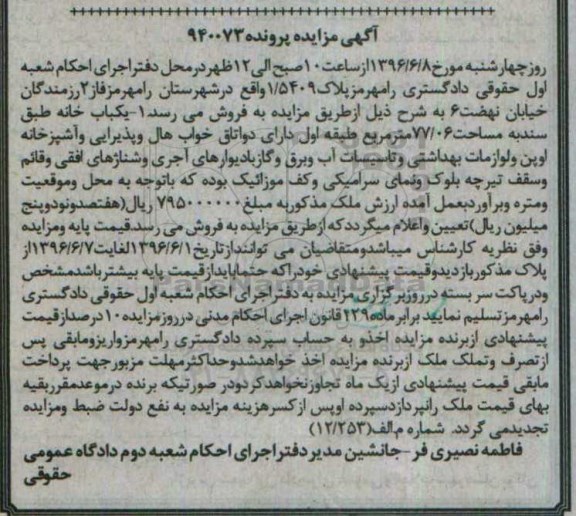 آگهی مزایده پرونده ۹۴۰۰۷۳
روز چهارشنبه مورخ ۱۳۹۶/۶/۸ از ساعت ۱۰ صبح الی ۱۲ ظهر در محل دفتر اجرای احکام شعبه
اول حقوقی دادگستری رامهرمز پلاک ۱/۵۴۰۹ واقع در شهرستان رامهرمز فاز ۲ رزمندگان
خیابان نهضت ۶ به شرح ذیل از طریق مزایده به فروش می رسد. ۱-یکباب خانه طبق
سند به مساحت ۷۷/۰۶ مترمربع طبقه اول دارای دو اتاق خواب هال و پذیرایی و آشپزخانه
اوپن و لوازمات بهداشتی و تاسیسات آب و برق و گاز با دیوارهای آجری و شناژهای افقی و قائم
و سقف تیرچه بلوک و نمای سرامیکی و کف موزائیک بوده که با توجه به محل و موقعیت
و متره و برآورد بعمل آمده ارزش ملک مذکور به مبلغ ۷۹۵۰۰۰۰۰۰ ریال(هفتصد و نود و پنج
میلیون ریال) تعیین و اعلام میگردد که از طریق مزایده به فروش می رسد. قیمت پایه ومزایده
وفق نظریه کارشناس میباشد و متقاضیان می توانند از تاریخ ۱۳۹۶/۶/۱ لغایت ۱۳۹۶/۶/۷ از
پلاک مذکور بازدید و قیمت پیشنهادی خود را که حتما باید از قیمت پایه بیشتر باشد مشخص
و در پاکت سر بسته در روز برگزاری مزایده به دفتر اجرای احکام شعبه اول حقوقی دادگستری
رامهرمز تسلیم نمایید برابر ماده ۱۲۹ قانون اجرای احکام مدنی در روز مزایده ۱۰ درصد از قیمت
پیشنهادی از برنده مزایده اخذ و به حساب سپرده دادگستری رامهرمز واریز و مابقی پس
از تصرف و تملک ملک از برنده مزایده اخذ خواهد شد و حداکثر مهلت مزبور جهت پرداخت
مابقی قیمت پیشنهادی از یک ماه تجاوز نخواهد کرد و در صورتیکه برنده در موعد مقرر بقیه
بهای قیمت ملک را نپردازد سپرده او پس از کسر هزینه مزایده به نفع دولت ضبط و مزایده
تجدید می گردد. شماره م.الف(۱۲/۲۵۳)
فاطمه نصیری فر -جانشین مدیر دفتر اجرای احکام شعبه دوم دادگاه عمومی
حقوقی